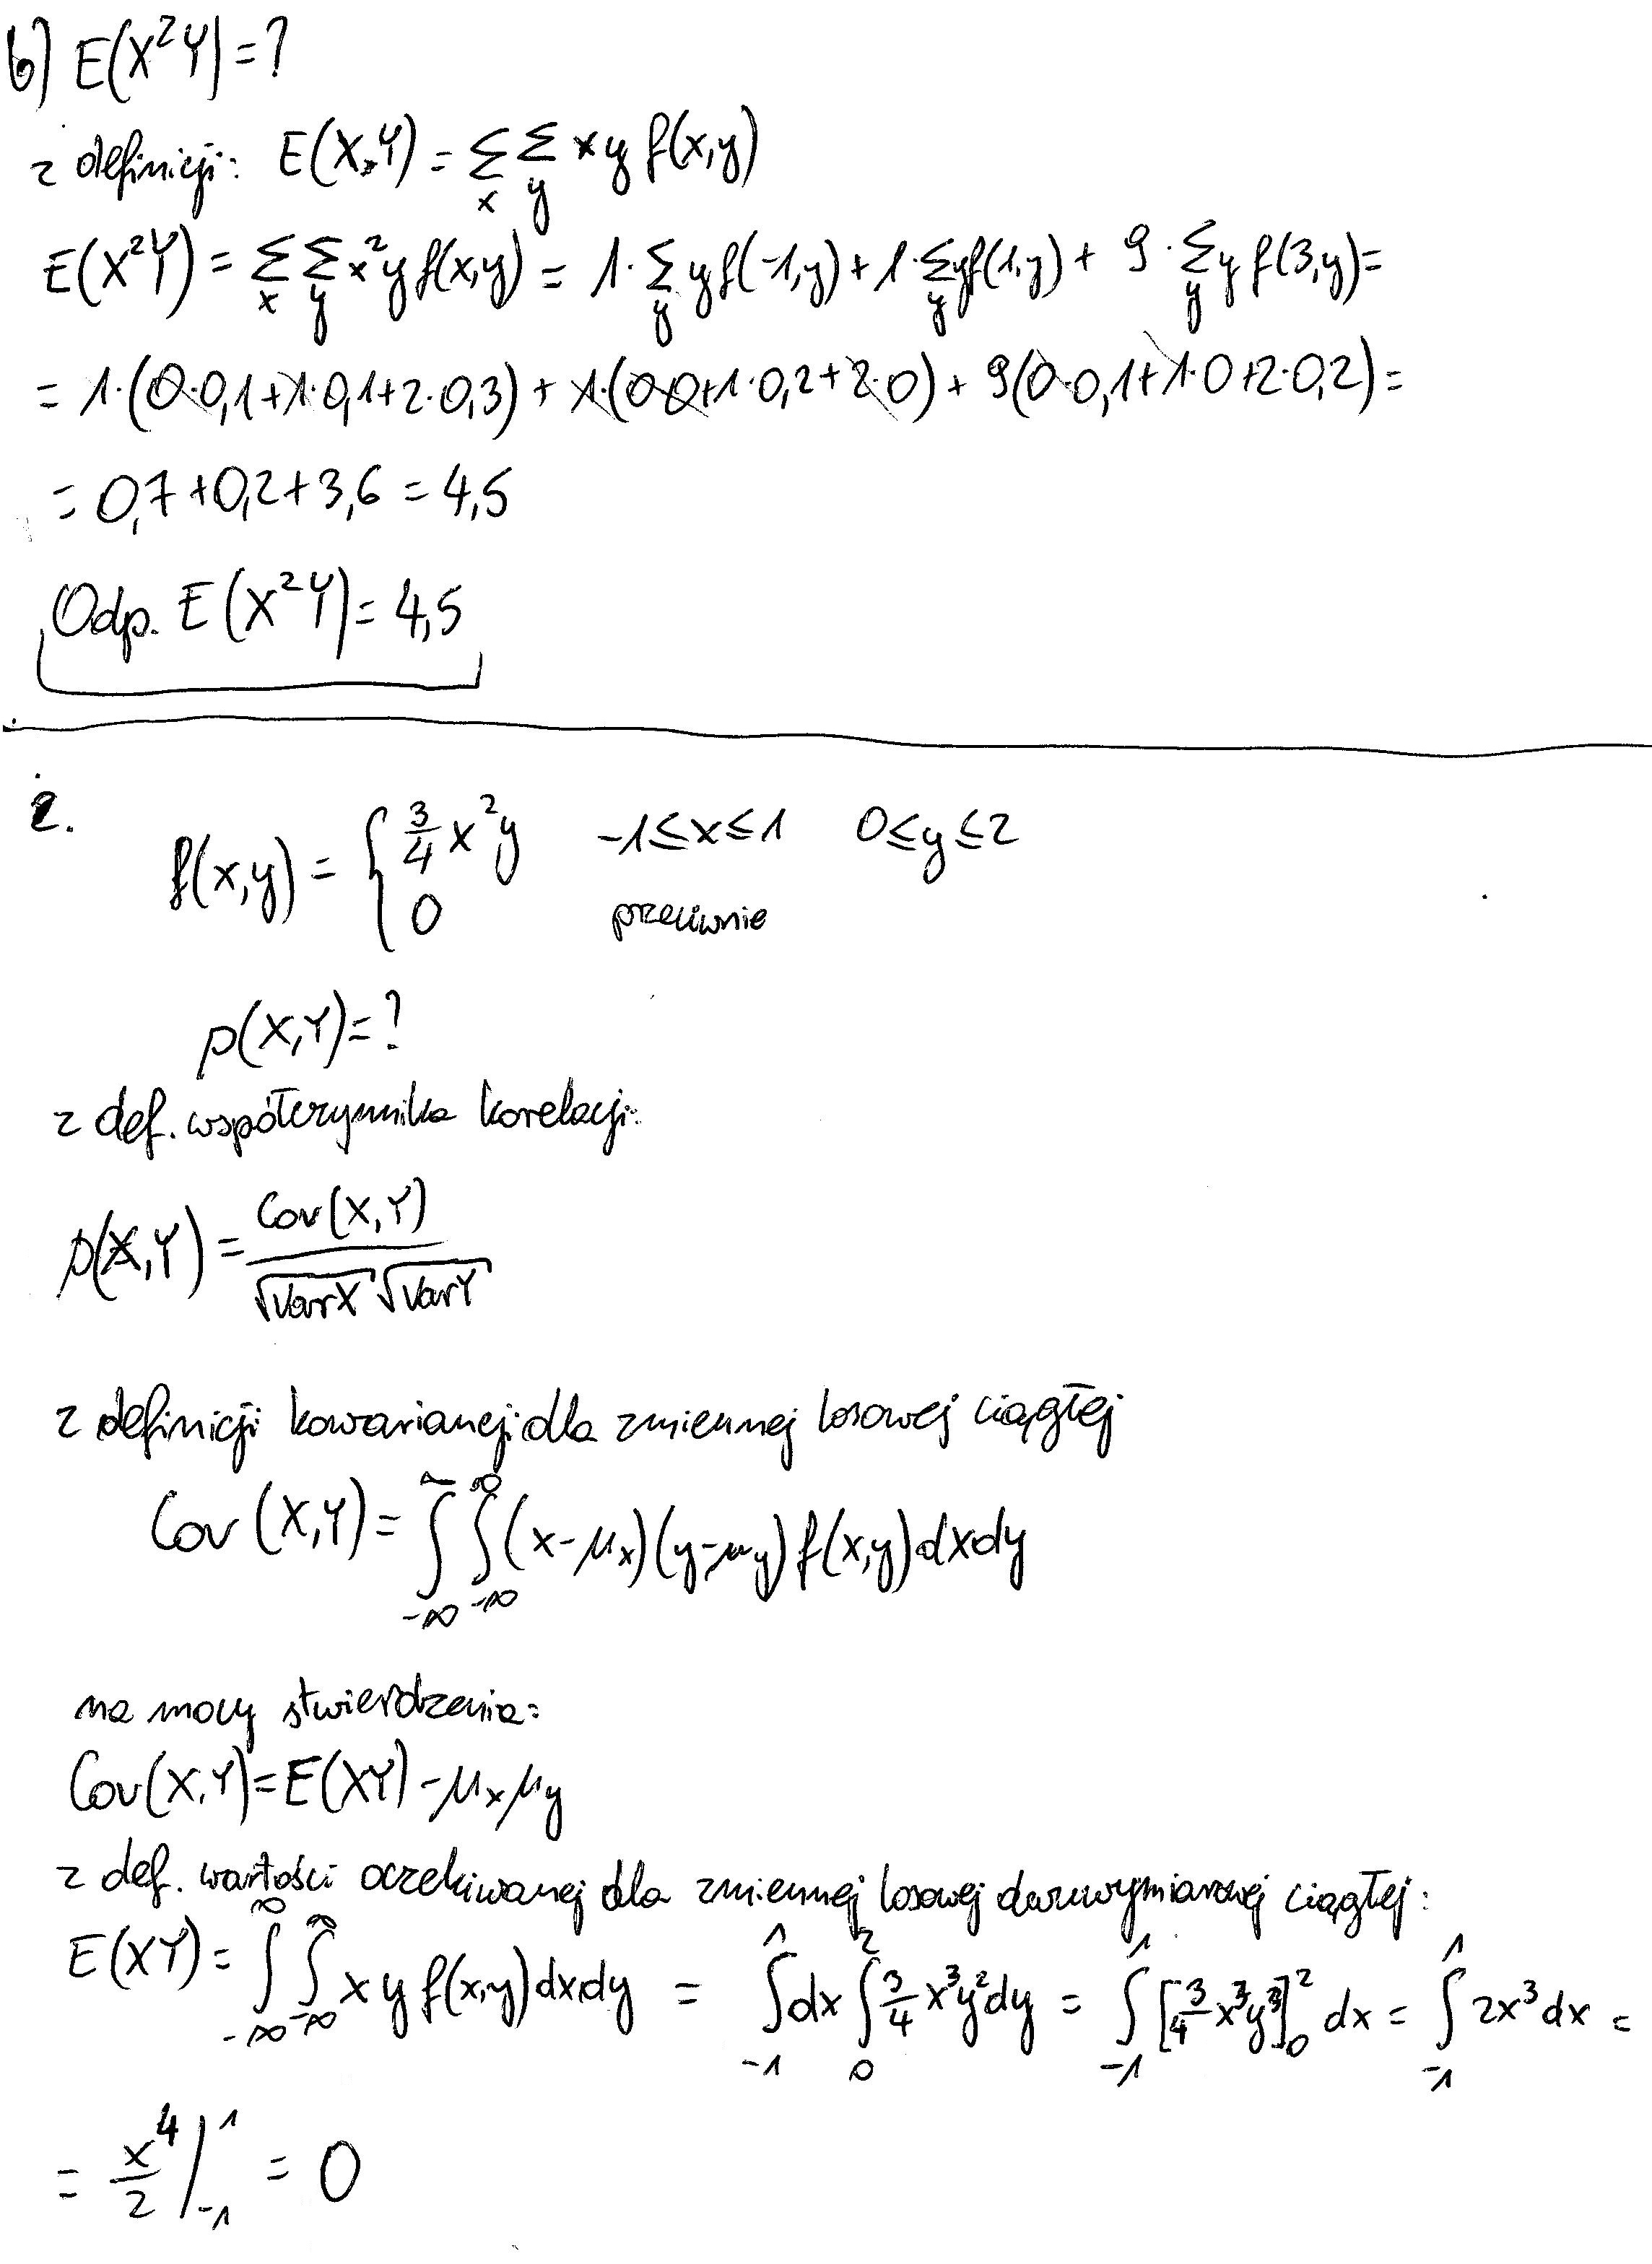 b) E(X²Y)=?
z definicji: E(X,Y) = Σx Σy xy f(x,y)
E(X²Y) = Σx Σy x²y f(x,y) = 1·Σy y f(-1,y) + 1·Σy y f(1,y) + 9·Σy y f(3,y) =
= 1·(0·0,1+1·0,1+2·0,3) + 1·(0·0+1·0,2+2·0) + 9(0·0,1+1·0+2·0,2) =
= 0,7+0,2+3,6 = 4,5
Odp. E(X²Y) = 4,5
2.
f(x,y) = { 3/4 x²y -1≤x≤1 0≤y≤2
0 przeciwnie
ρ(X,Y)=?
z def. współczynnika korelacji:
ρ(X,Y) = Cov(X,Y) / √VarX √VarY
z definicji kowariancji dla zmiennej losowej ciągłej
Cov(X,Y) = ∫_{-∞}^{∞} ∫_{-∞}^{∞} (x-μx)(y-μy) f(x,y) dxdy
na mocy stwierdzenia:
Cov(X,Y) = E(XY) - μxμy
z def. wartości oczekiwanej dla zmiennej losowej dwuwymiarowej ciągłej:
E(XY) = ∫_{-∞}^{∞} ∫_{-∞}^{∞} x y f(x,y) dxdy = ∫_{-1}^{1} dx ∫_{0}^{2} 3/4 x³y² dy = ∫_{-1}^{1} [3/4 x³y³]_{0}^{2} dx = ∫_{-1}^{1} 2x³ dx =
= x⁴/2 |_{-1}^{1} = 0